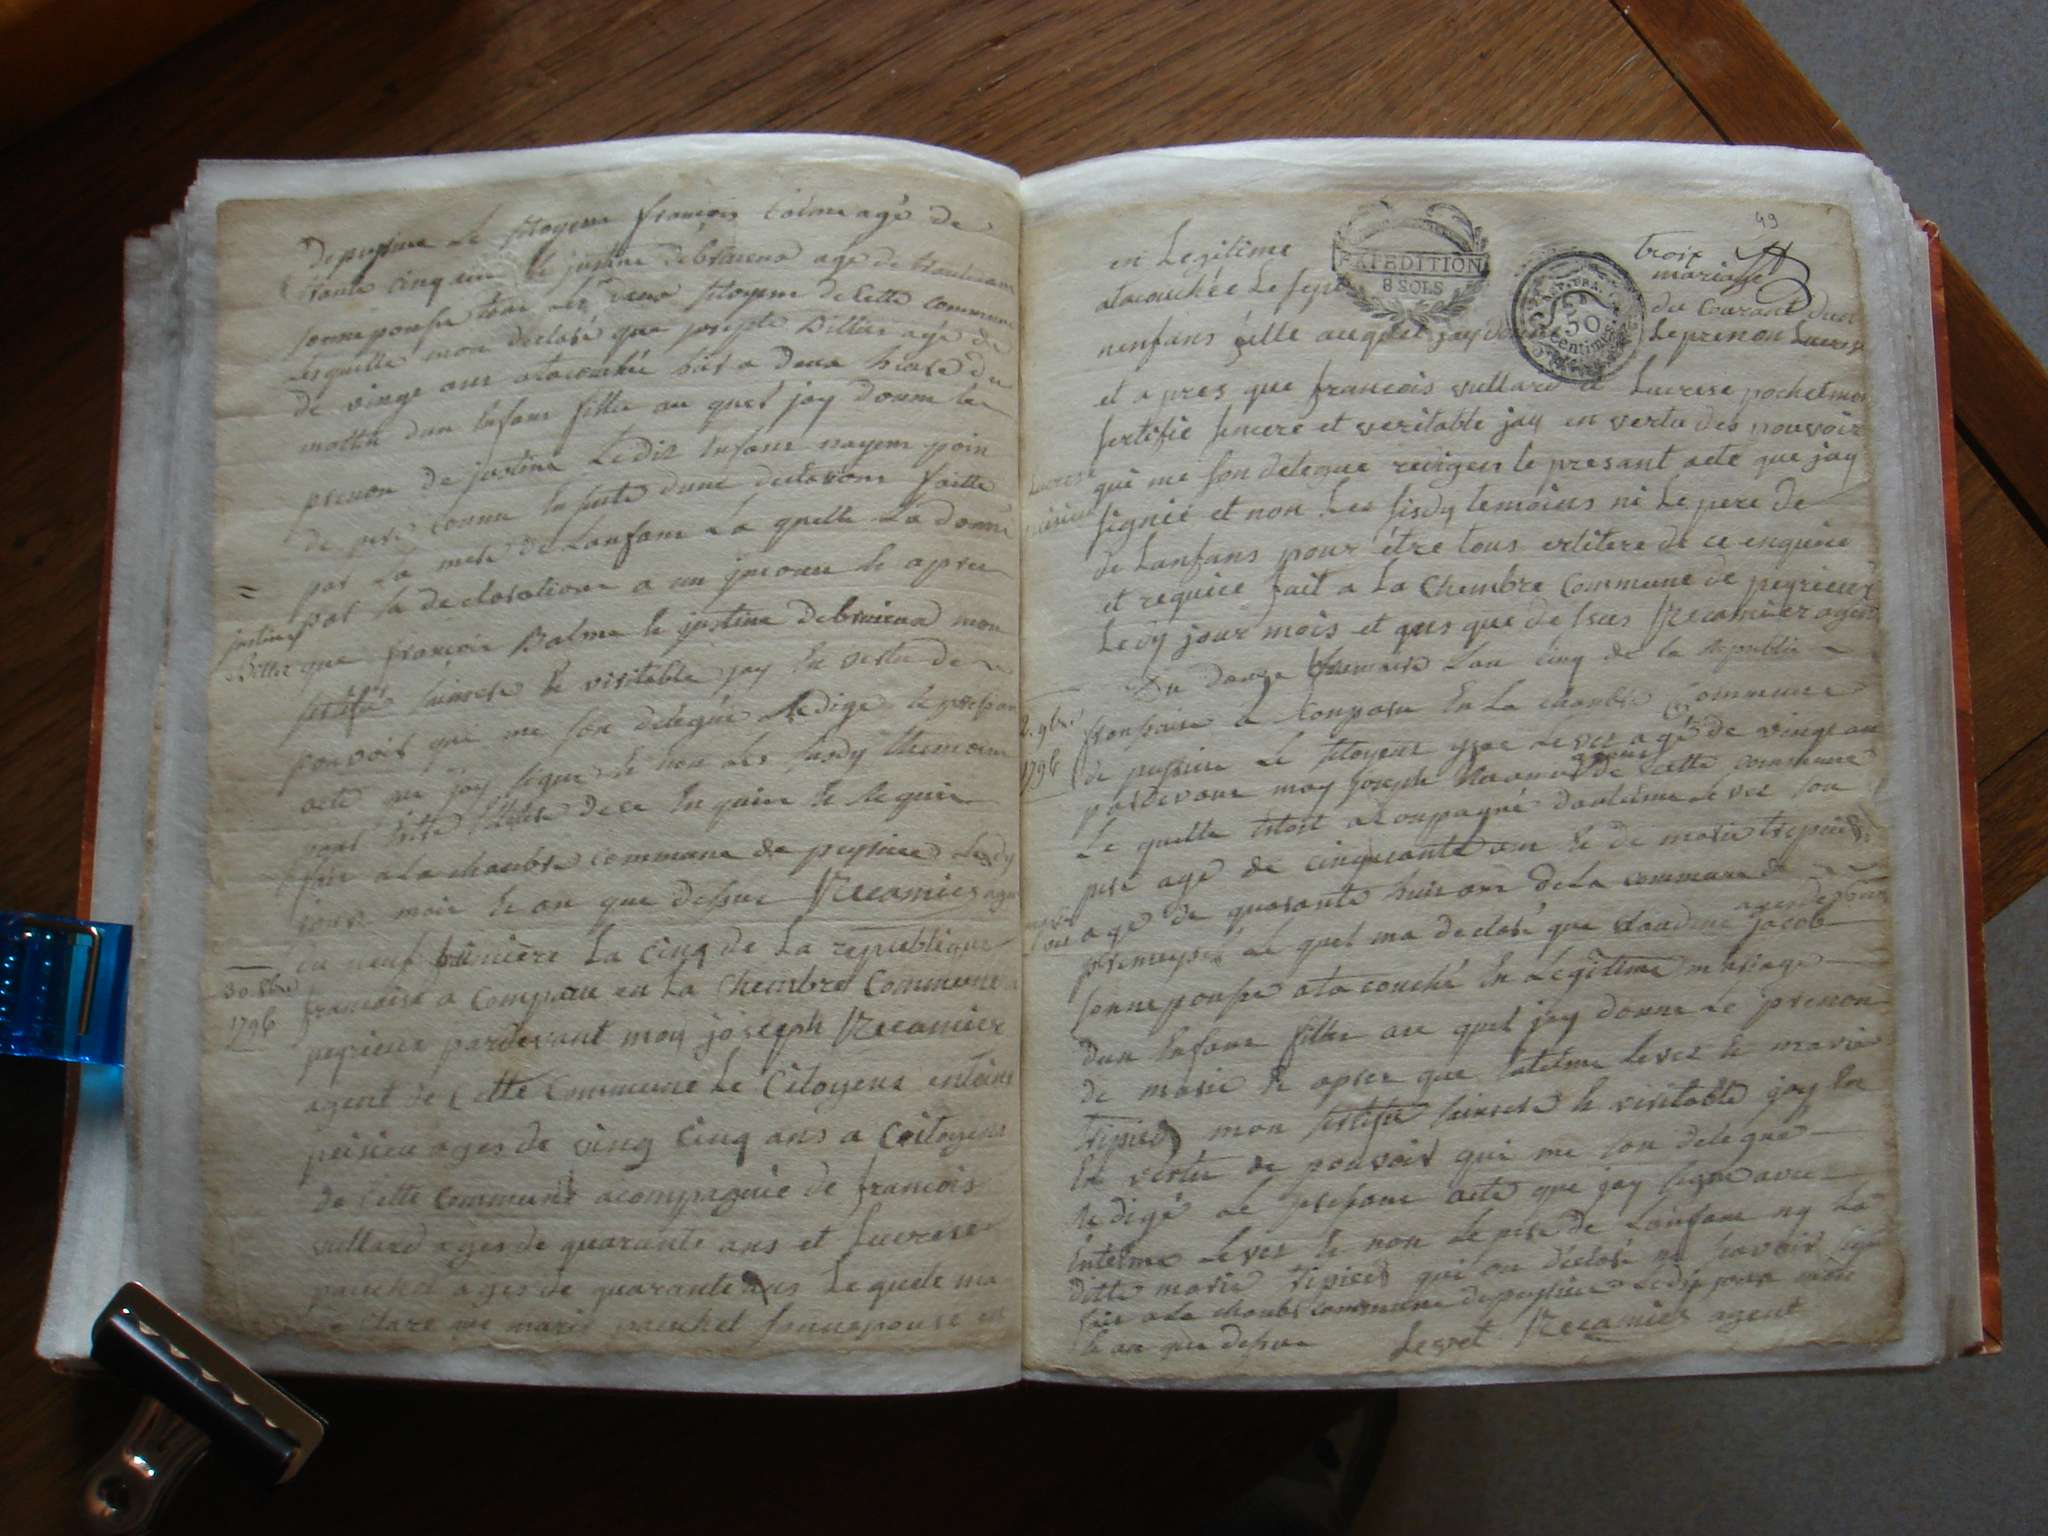 de pugieux le sitoyens francois balme agé de
trante cinq ans et justine debruiena age de trante ans
sonne pouse tous les deux sitoyens de cette commune
lesquelle mon declaré que josepte Billier agé de
de vingt ans atacouché hier a deux heure du
mattin dun enfans fille au quel jay donné le
prenon de justine Ledit enfans nayem poin
de pere connu en suite dune declarations faitte
par la mere de Lanfans La quelle La donné
par sa declarations a un jnconu et apres
justine
Billier
que francois Balme et justine debruiena mon
sertifié sinsere et veritable jay en vertu de
pouvoir qui me son delegué redigé le presan
acte que jay signé et non les susdy themoins
pour etre illitere de ce enquis et requis
fait a la chanbre commune de pugieux Lesdy
jour mois et an que dessue Recamier agent
30 9bre
1796
du neuf frimière La cinq de La republique
francaise a comparu en La Chembre Commune a
peyrieux pardevant moy joseph Recamier
agent de Cette Commune Le Citoyens entoine
peisieu ages de ving cinq ans a Coitoyens
de Cette Commune acompagnié de francois
vullard ages de quarante ans et Lucrese
pauchet ages de quarante ans Le quele ma
declare que marie pauchet sonne pouse en
49
en Legitime
EXPEDITION
8 SOLS
REP. FRA.
50
Centimes
troix
mariasse
atacouchée Le sept
du Courant dun
nenfans fille auquel jay donné
Le prenon Lucrese
et apres que francois vullard et Lucrese pochet mon
sertifié sincere et veritable jay en vertu des pouvoir
qui me son delegue rediger le presant acte que jay
Lucrese
peisieu
signié et non Les susdy temoins ni Le pere de
de Lanfans pour étre tous ilitere de ce enquiée
et requiée fait a La Chembre Commune de peyrieux
Ledy jour mois et ans que desus Recamier agent
2 9bre
1796
Du douze frimaire Lan cinq de la republi
fransaise a conparu en La chanbre Commune
de pugieux Le sitoyens ysac Levet agé de vingt an
pardevans moy joseph Recamier agent de cette commune
Le quelle estoit acompagné dantelme Levet son
pere age de cinquante ans et de marie tripier
marie
Levet
age de quarante huit ans de La commune de
premeysel Le quel ma declaré que Claudine jacob
sonne pouse atacouché en Legitime mariage
dun enfans fille au quel jay donné Le prenon
de marie et apres que entelme Levet et marie
tripier mon sertifié sinsere et veritable jay en
en vertu de pouvoir qui me son delegué
redigé Le presans acte que jay signé avec
entelme Levet et non Le pere de Lanfans ny La
ditte marie tripier qui on déclaré ne savoir signé
fait a La chanbre commune de pugieux Ledit jour mois
et an que desus Levet Recamier agent